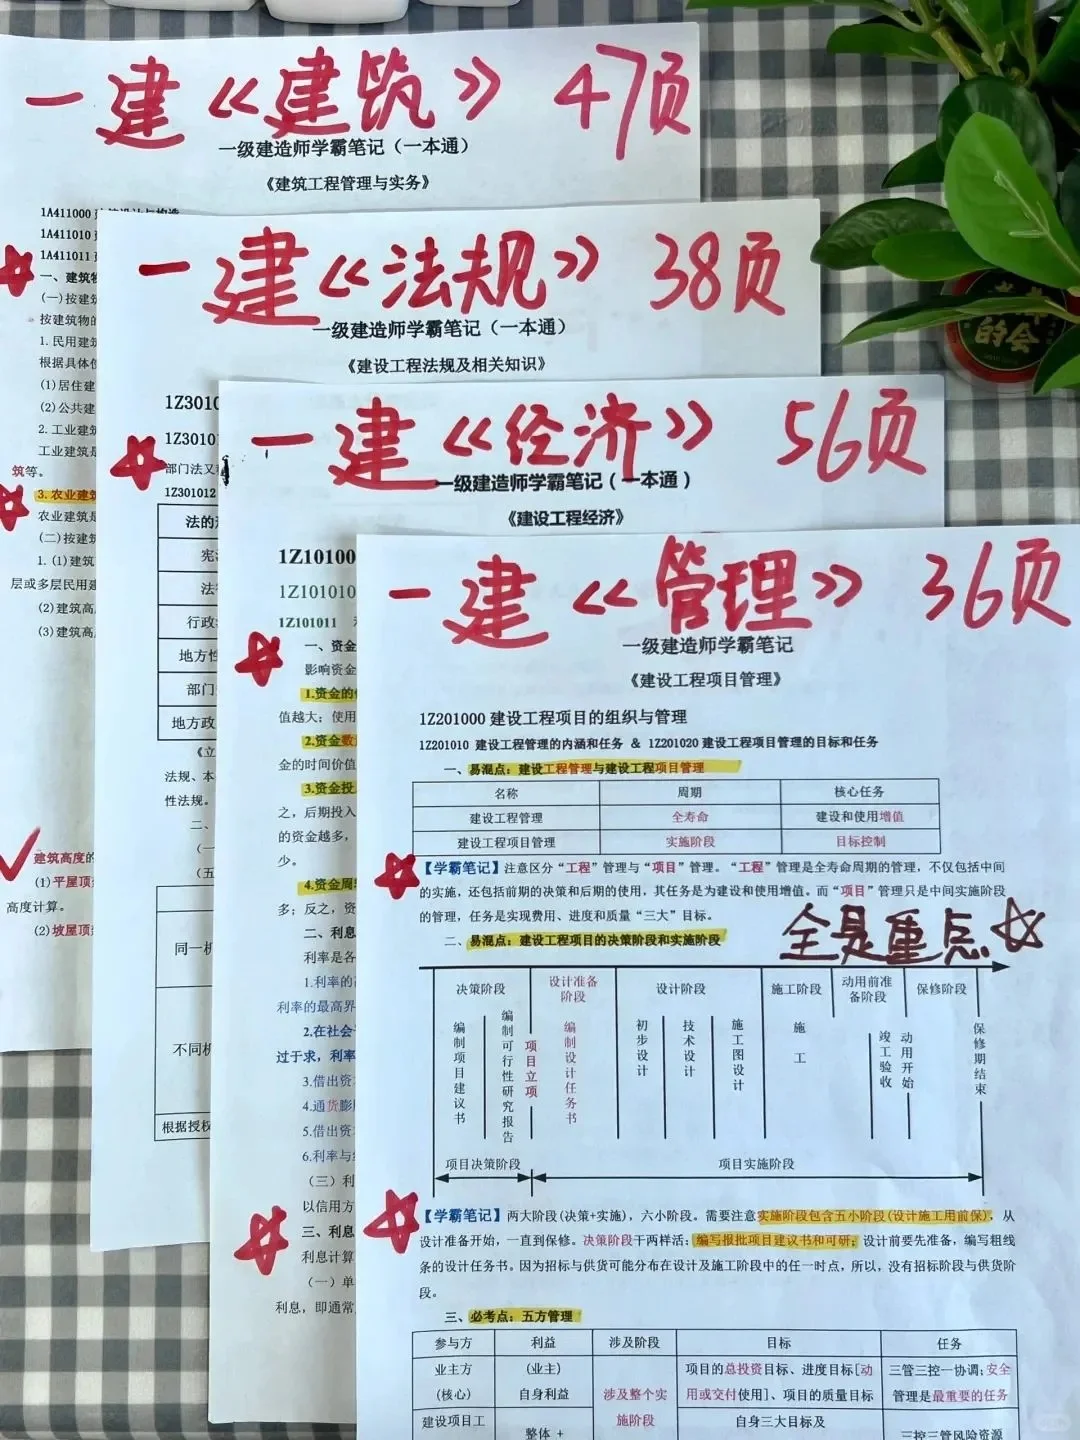 一建《建筑》 47页
一级建造师学霸笔记（一本通）
《建筑工程管理与实务》
1A411000
1A411010
1A411011
一、建筑物
(一)按建筑
按建筑物的
1. 民用建筑
根据具体使
(1)居住建
(2)公共建
2. 工业建筑
工业建筑是
筑等。
3. 农业建筑
农业建筑是
(二)按建筑
1. (1)建筑
层或多层民用建
(2)建筑高
(3)建筑高
建筑高度的
(1)平屋顶
高度计算。
(2)坡屋顶
一建《法规》 38页
一级建造师学霸笔记（一本通）
《建设工程法规及相关知识》
1Z3010
1Z3010
部门法又
1Z301012
法的形
宪
法
行政
地方性
部门
地方政
《立
法规、本
性法规。
二、
(一
(五
同一机
不同机
根据授权
一建《经济》 56页
一级建造师学霸笔记（一本通）
《建设工程经济》
1Z10100
1Z101010
1Z101011
一、资金
影响资金
1.资金的
值越大；使用
2.资金数
金的时间价值
3.资金投
之，后期投入
的资金越多，
少。
4.资金周
多；反之，资
二、利息
利率是各
1.利率的
利率的最高界
2.在社会
过于求，利率
3.借出资
4.通货膨
5.借出资
6.利率与
（三）利
以信用方
三、利息
利息计算
（一）单
利息，即通常
一建《管理》 36页
一级建造师学霸笔记
《建设工程项目管理》
1Z201000 建设工程项目的组织与管理
1Z201010 建设工程管理的内涵和任务 & 1Z201020 建设工程项目管理的目标和任务
一、易混点：建设工程管理与建设工程项目管理
名称 周期 核心任务
建设工程管理 全寿命 建设和使用增值
建设工程项目管理 实施阶段 目标控制
【学霸笔记】注意区分“工程”管理与“项目”管理。“工程”管理是全寿命周期的管理，不仅包括中间
的实施，还包括前期的决策和后期的使用，其任务是为建设和使用增值。而“项目”管理只是中间实施阶段
的管理，任务是实现费用、进度和质量“三大”目标。
全是重点
二、易混点：建设工程项目的决策阶段和实施阶段
决策阶段 设计准备阶段 设计阶段 施工阶段 动用前准备阶段 保修阶段
编制项目建议书
编制可行性研究报告
项目立项
编制设计任务书
初步设计
技术设计
施工图设计
施工
竣工验收
动用开始
保修期结束
项目决策阶段 项目实施阶段
【学霸笔记】两大阶段(决策+实施)，六小阶段。需要注意实施阶段包含五小阶段(设计施工用前保)，从
设计准备开始，一直到保修。决策阶段干两样活：编写报批项目建议书和可研；设计前要先准备，编写粗线
条的设计任务书。因为招标与供货可能分布在设计及施工阶段中的任一时点，所以，没有招标阶段与供货阶
段。
三、必考点：五方管理
参与方 利益 涉及阶段 目标 任务
业主方 (业主) 项目的总投资目标、进度目标[动 三管三控一协调；安全
(核心) 自身利益 涉及整个实 用或交付使用]、项目的质量目标 管理是最重要的任务
建设项目工 整体 + 施阶段 自身三大目标及 三控三管风险资源